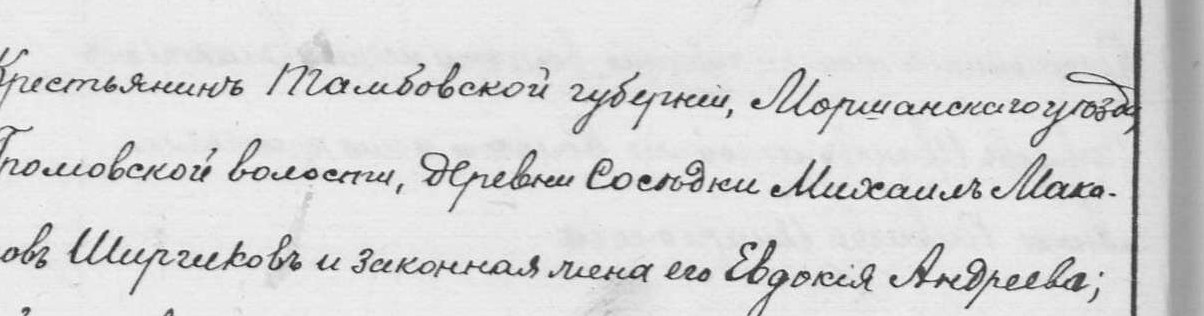 Крестьянинъ Тамбовской губерніи, Моршанскаго уѣзда,
Громовской волости, деревни Сосѣдки Михаилъ Мака-
овъ и законная жена его Евдокія Андреева;